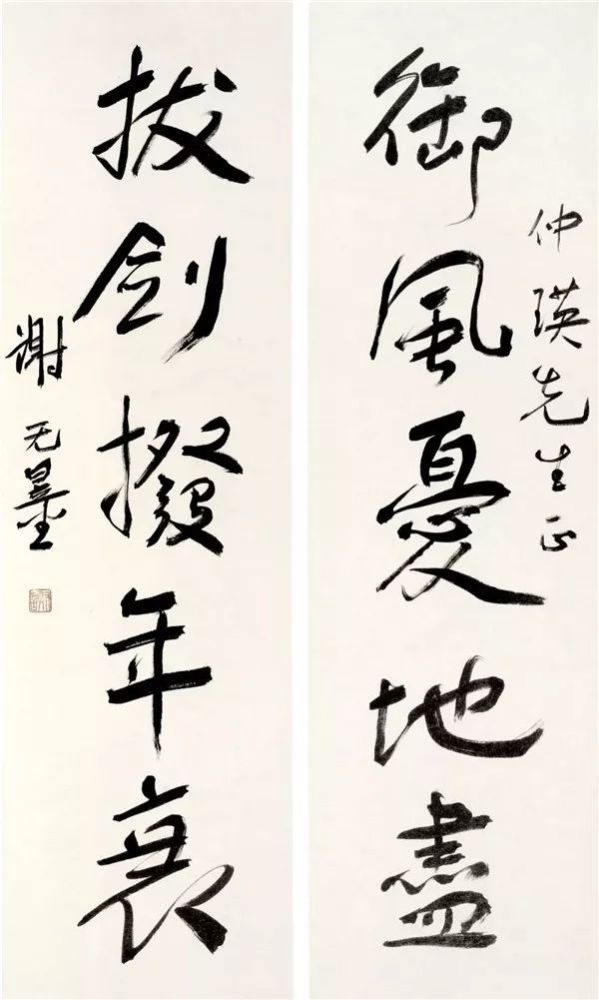 仲瑛先生正
御風憂地盡
拔剑撥年衰
謝无量